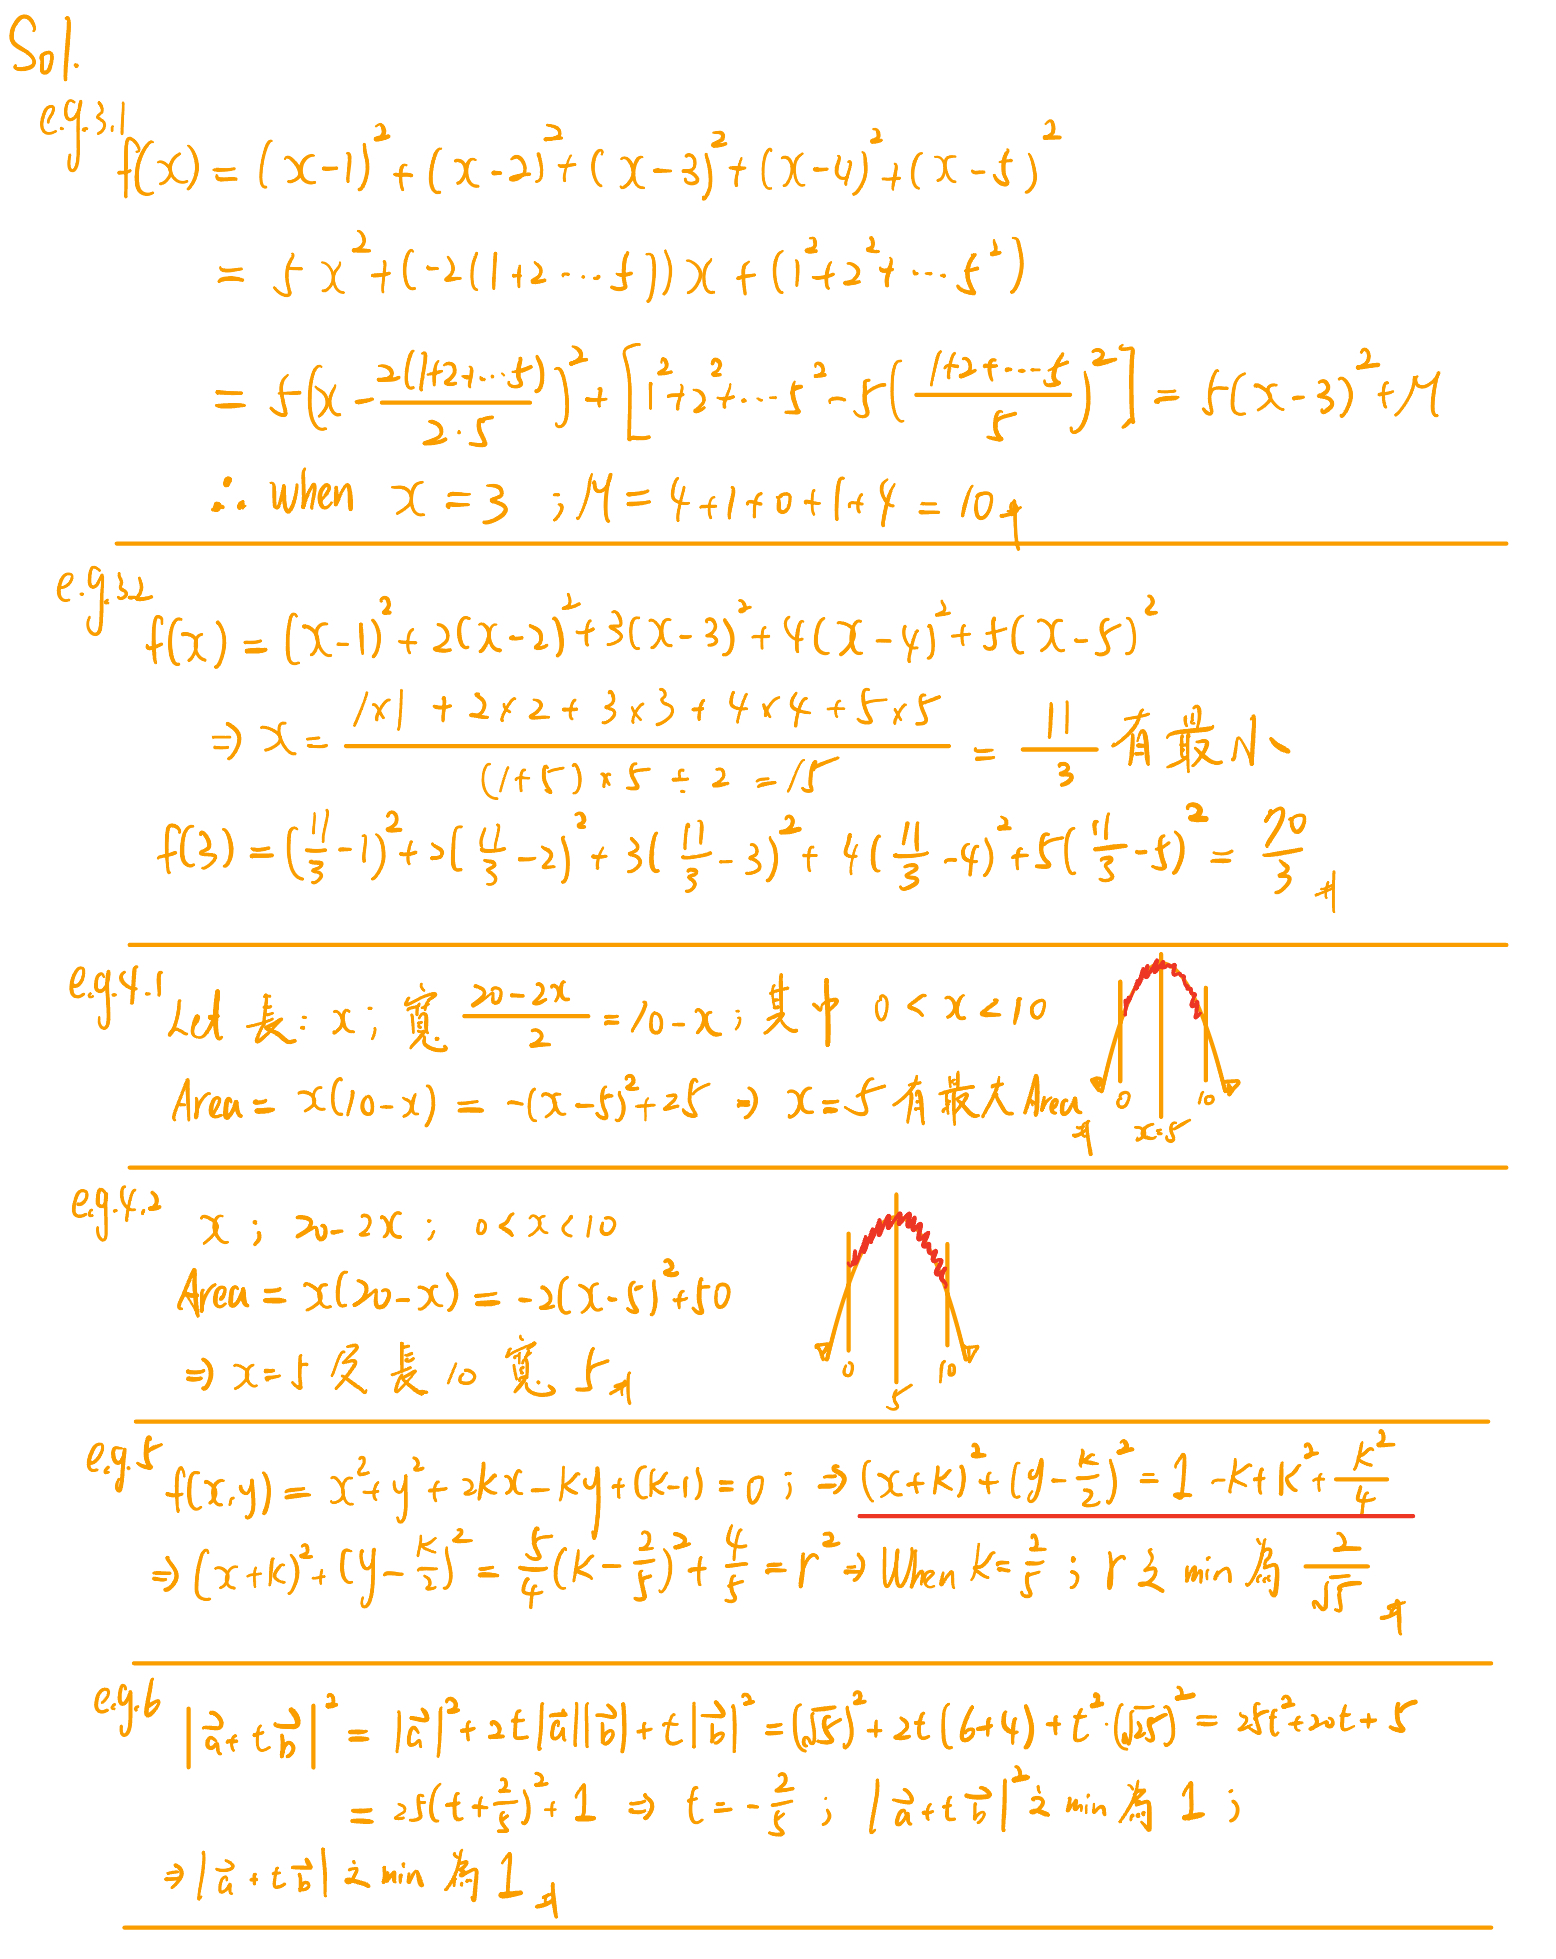 Sol.
e.g.3.1
f(x) = (x-1)² + (x-2)² + (x-3)² + (x-4)² + (x-5)²
= 5x² + (-2(1+2…5))x + (1²+2²+…5²)
= 5(x - \frac{2(1+2+…5)}{2·5})² + [1²+2²+…5² - 5(\frac{1+2+…5}{5})²] = 5(x-3)² + M
∴ when x = 3 ; M = 4+1+0+1+4 = 10
e.g.3.2
f(x) = (x-1)² + 2(x-2)² + 3(x-3)² + 4(x-4)² + 5(x-5)²
⇒ x = \frac{1×1 + 2×2 + 3×3 + 4×4 + 5×5}{(1+5)×5÷2=15} = \frac{11}{3} 有最小
f(3) = (\frac{11}{3}-1)² + 2(\frac{11}{3}-2)² + 3(\frac{11}{3}-3)² + 4(\frac{11}{3}-4)² + 5(\frac{11}{3}-5)² = \frac{70}{3}
e.g.4.1
Let 長: x ; 寬 \frac{20-2x}{2} = 10-x ; 其中 0 < x < 10
Area = x(10-x) = -(x-5)² + 25 ⇒ x = 5 有最大 Area
0 10
x=5
e.g.4.2
x ; 20-2x ; 0 < x < 10
Area = x(20-x) = -2(x-5)² + 50
⇒ x = 5 及 長 10 寬 5
0 10
5
e.g.5
f(x,y) = x² + y² + 2kx - ky + (k-1) = 0 ; ⇒ (x+k)² + (y-\frac{k}{2})² = 1 - k + k² + \frac{k²}{4}
⇒ (x+k)² + (y-\frac{k}{2})² = \frac{5}{4}(k-\frac{2}{5})² + \frac{4}{5} = r² ⇒ When k = \frac{2}{5} ; r 之 min 為 \frac{2}{√5}
e.g.6
|\vec{a}+t\vec{b}|² = |\vec{a}|² + 2t|\vec{a}||\vec{b}| + t|\vec{b}|² = (√5)² + 2t(6+4) + t²·(√25)² = 25t² + 20t + 5
= 25(t+\frac{2}{5})² + 1 ⇒ t = -\frac{2}{5} ; |\vec{a}+t\vec{b}|² 之 min 為 1 ;
⇒ |\vec{a}+t\vec{b}| 之 min 為 1